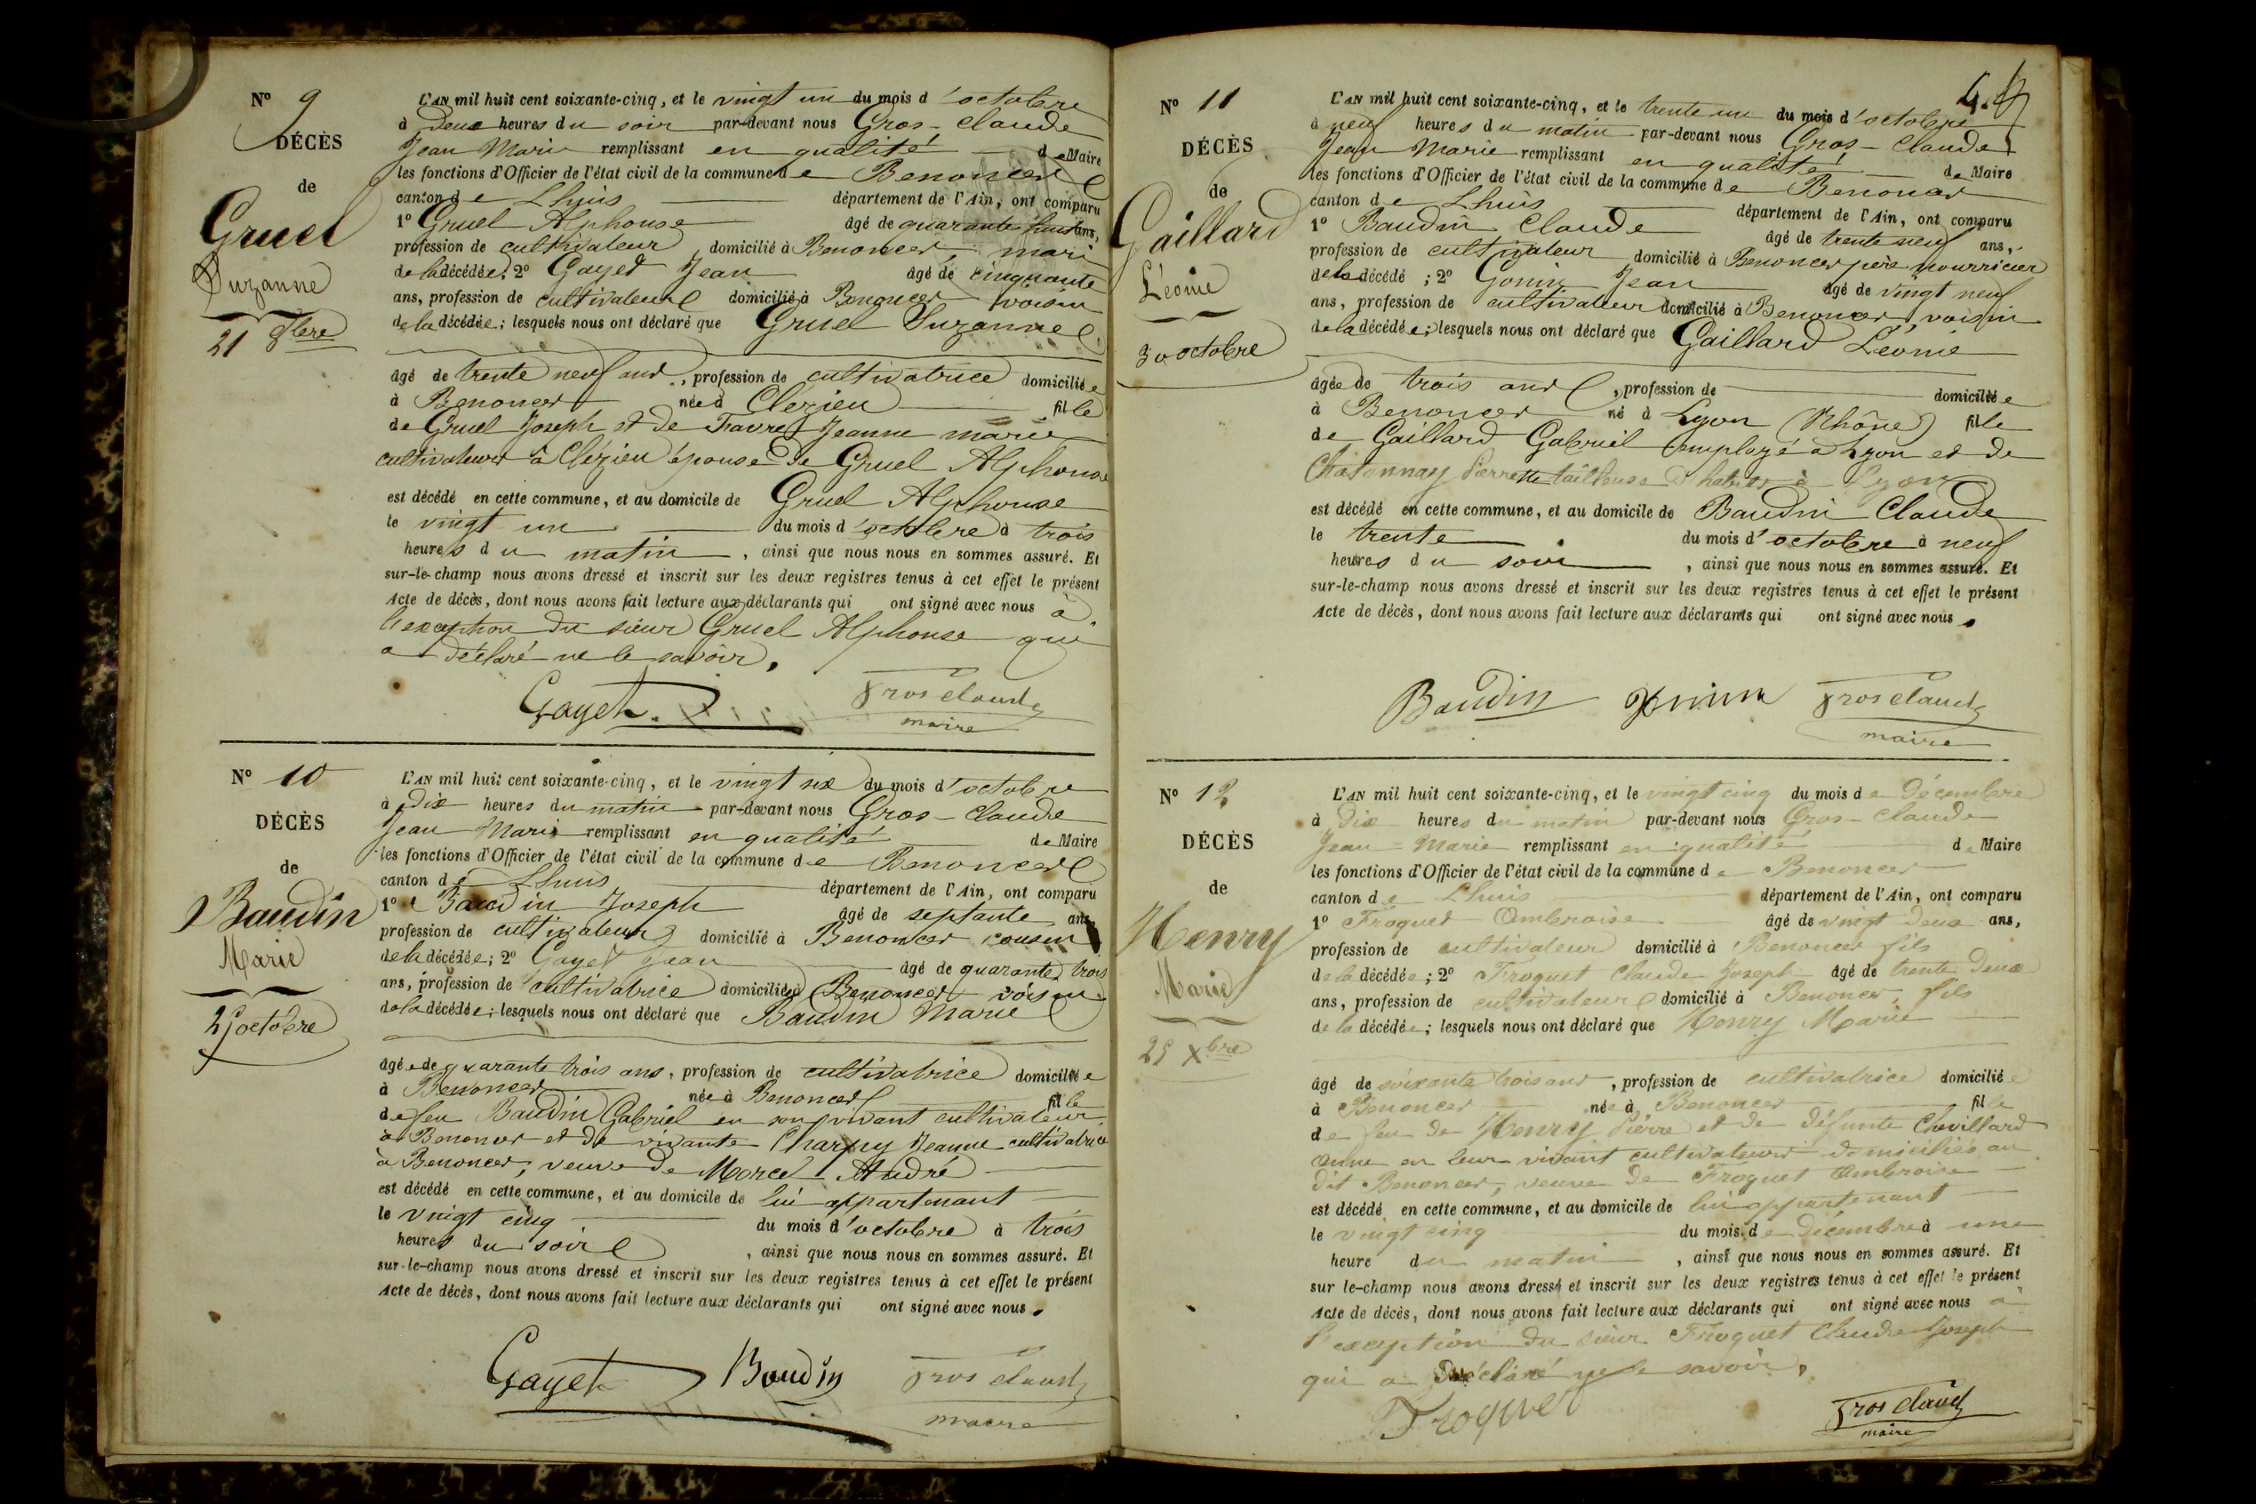 N° 9
DÉCÈS
de
Gruel
Suzanne
21 8bre
L'AN mil huit cent soixante-cinq, et le vingt un du mois d'octobre
à deux heures du soir par-devant nous Gros-Claude
Jean Marie remplissant en qualité de Maire
les fonctions d'Officier de l'état civil de la commune de Benonces
canton de Lhuis département de l'Ain, ont comparu
1° Gruel Alphonse âgé de quarante huit ans,
profession de cultivateur domicilié à Benonces, mari
de la décédée; 2° Gayet Jean âgé de cinquante
ans, profession de cultivateur domicilié à Benonces voisin
de la décédée; lesquels nous ont déclaré que Gruel Suzanne
âgé de trente neuf ans, profession de cultivatrice domiciliée
à Benonces née à Clézieu fille
de Gruel Joseph et de Favre Jeanne marie
cultivateurs à Clézieu épouse de Gruel Alphonse
est décédé en cette commune, et au domicile de Gruel Alphonse
le vingt un du mois d'octobre à trois
heures du matin, ainsi que nous nous en sommes assuré. Et
sur-le-champ nous avons dressé et inscrit sur les deux registres tenus à cet effet le présent
Acte de décès, dont nous avons fait lecture aux déclarants qui ont signé avec nous à
l'exception du sieur Gruel Alphonse qui
a déclaré ne le savoir.
Gayet Gros claude
maire
N° 10
DÉCÈS
de
Baudin
Marie
25 octobre
L'AN mil huit cent soixante-cinq, et le vingt six du mois d'octobre
à dix heures du matin par-devant nous Gros-Claude
Jean Marie remplissant en qualité de Maire
les fonctions d'Officier de l'état civil de la commune de Benonces
canton de Lhuis département de l'Ain, ont comparu
1° Baudin Joseph âgé de septante ans
profession de cultivateur domicilié à Benonces cousin
de la décédée; 2° Gayet Jean âgé de quarante trois
ans, profession de cultivatrice domicilié à Benonces voisin
de la décédée; lesquels nous ont déclaré que Baudin Marie
âgée de quarante trois ans, profession de cultivatrice domiciliée
à Benonces née à Benonces fille
de feu Baudin Gabriel en son vivant cultivateur
à Benonces et de vivante Charpy Jeanne cultivatrice
à Benonces, veuve de Morcel André
est décédé en cette commune, et au domicile de lui appartenant
le vingt cinq du mois d'octobre à trois
heures du soir, ainsi que nous nous en sommes assuré. Et
sur-le-champ nous avons dressé et inscrit sur les deux registres tenus à cet effet le présent
Acte de décès, dont nous avons fait lecture aux déclarants qui ont signé avec nous.
Gayet Baudin Gros claude
maire
N° 11
DÉCÈS
de
Gaillard
Léonie
30 octobre
L'AN mil huit cent soixante-cinq, et le trente un du mois d'octobre
à neuf heures du matin par-devant nous Gros-Claude
Jean Marie remplissant en qualité de Maire
les fonctions d'Officier de l'état civil de la commune de Benonces
canton de Lhuis département de l'Ain, ont comparu
1° Baudin Claude âgé de trente neuf ans,
profession de cultivateur domicilié à Benonces père nourricier
de la décédé; 2° Gonin Jean âgé de vingt neuf
ans, profession de cultivateur domicilié à Benonces, voisin
de la décédée; lesquels nous ont déclaré que Gaillard Léonie
âgée de trois ans, profession de domiciliée
à Benonces né à Lyon (Rhône) fille
de Gaillard Gabriel employé à Lyon et de
Chatonnay Pierrette tailleuse d'habits à Lyon
est décédé en cette commune, et au domicile de Baudin Claude
le trente du mois d'octobre à neuf
heures du soir, ainsi que nous nous en sommes assuré. Et
sur-le-champ nous avons dressé et inscrit sur les deux registres tenus à cet effet le présent
Acte de décès, dont nous avons fait lecture aux déclarants qui ont signé avec nous.
Baudin Gonin Gros claude
maire
N° 12
DÉCÈS
de
Henry
Marie
25 Xbre
L'AN mil huit cent soixante-cinq, et le vingt cinq du mois de décembre
à dix heures du matin par-devant nous Gros-Claude
Jean-Marie remplissant en qualité de Maire
les fonctions d'Officier de l'état civil de la commune de Benonces
canton de Lhuis département de l'Ain, ont comparu
1° Froquet Ambroise âgé de vingt deux ans,
profession de cultivateur domicilié à Benonces fils
de la décédée; 2° Froquet Claude Joseph âgé de trente deux
ans, profession de cultivateur domicilié à Benonces, fils
de la décédée; lesquels nous ont déclaré que Henry Marie
âgé de soixante trois ans, profession de cultivatrice domiciliée
à Benonces née à Benonces fille
de feu de Henry Pierre et de défunte Chevillard
Anne en leur vivant cultivateurs domiciliés au
dit Benonces, veuve de Froquet Ambroise
est décédé en cette commune, et au domicile de lui appartenant
le vingt cinq du mois de décembre à une
heure du matin, ainsi que nous nous en sommes assuré. Et
sur le-champ nous avons dressé et inscrit sur les deux registres tenus à cet effet le présent
Acte de décès, dont nous avons fait lecture aux déclarants qui ont signé avec nous à
l'exception du sieur Froquet Claude Joseph
qui a déclaré ne le savoir.
Froquet Gros claude
maire